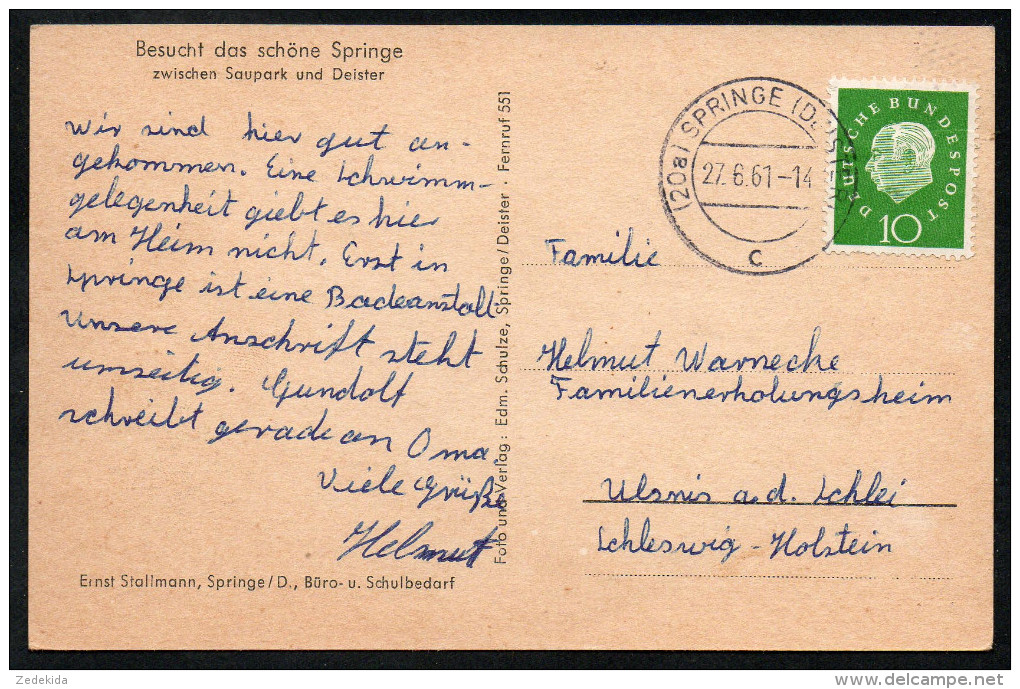 Besucht das schöne Springe
zwischen Saupark und Deister
Wir sind hier gut an-
gekommen. Eine Schwimm-
gelegenheit giebt es hier
am Heim nicht. Erst in
Springe ist eine Badeanstalt.
Unsere Anschrift steht
umseitig. Gundolf
schreibt gerade an Oma.
Viele Grüße
Helmut
Ernst Stallmann, Springe/D., Büro- u. Schulbedarf
Foto und Verlag: Edm. Schulze, Springe/Deister · Fernruf 551
(20a) SPRINGE (DEISTER)
27.6.61-14
c
DEUTSCHE BUNDESPOST
10
Familie
Helmut Warnecke
Familienerholungsheim
Ulsnis a.d. Schlei
Schleswig-Holstein
Zedekida
delcampe.net